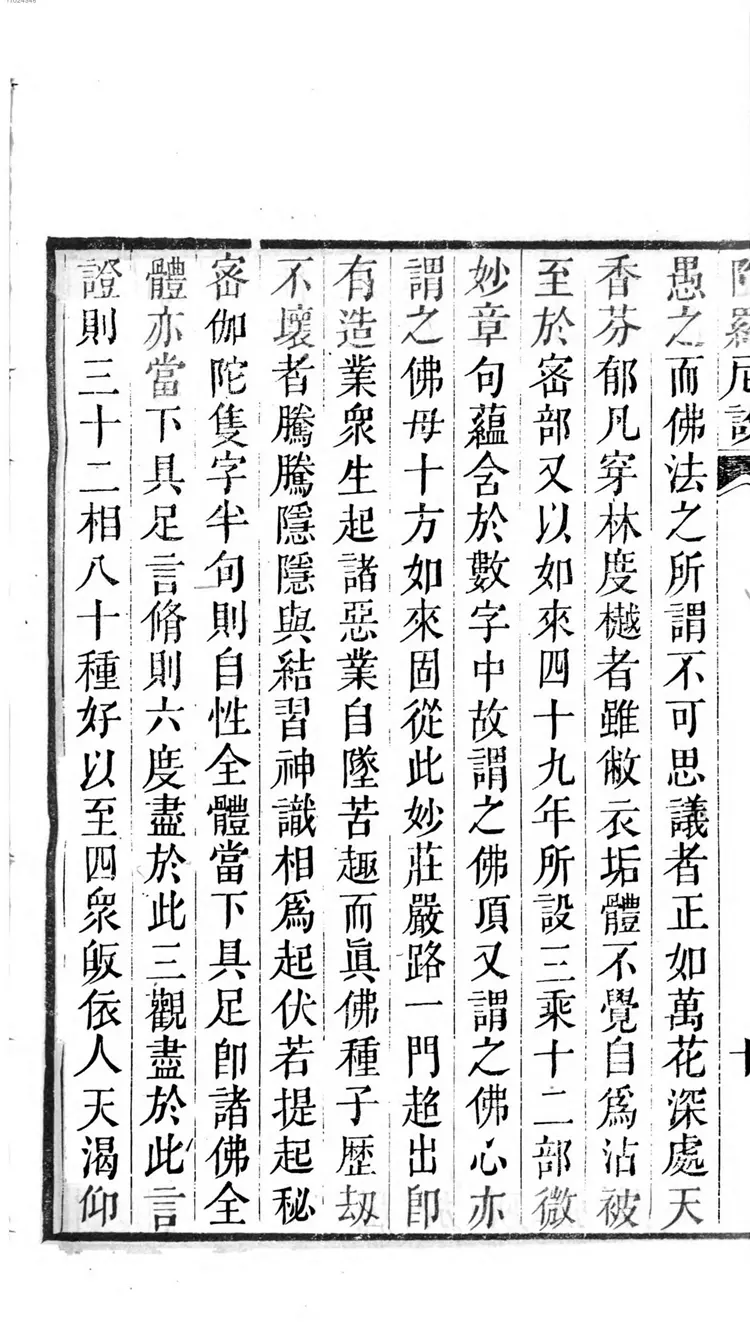 愚之而佛法之所謂不可思議者正如萬花深處天
香芬郁凡穿林度樾者雖敝衣垢體不覺自爲沾被
至於宻部又以如來四十九年所設三乘十二部微
妙章句蘊含於數字中故謂之佛頂又謂之佛心亦
謂之佛母十方如來固從此妙莊嚴路一門超出卽
有造業衆生起諸惡業自墜苦趣而眞佛種子歷刼
不壞者騰騰隱隱與結習神識相爲起伏若提起秘
宻伽陀隻字半句則自性全體當下具足卽諸佛全
體亦當下具足言脩則六度盡於此三觀盡於此言
證則三十二相八十種好以至四衆皈依人天渴仰